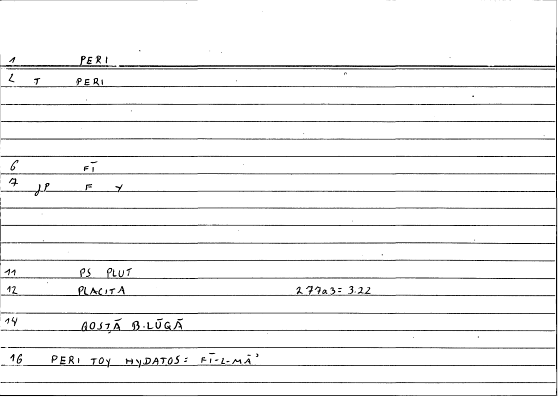 1 PERI
2 T PERI
6 FĪ
7 JP F Y
11 PS PLUT
12 PLACITA 277a3 = 3.22
14 QOSṬĀ B.LŪQĀ
16 PERI TOY HYDATOS = FĪ-L-MĀ'